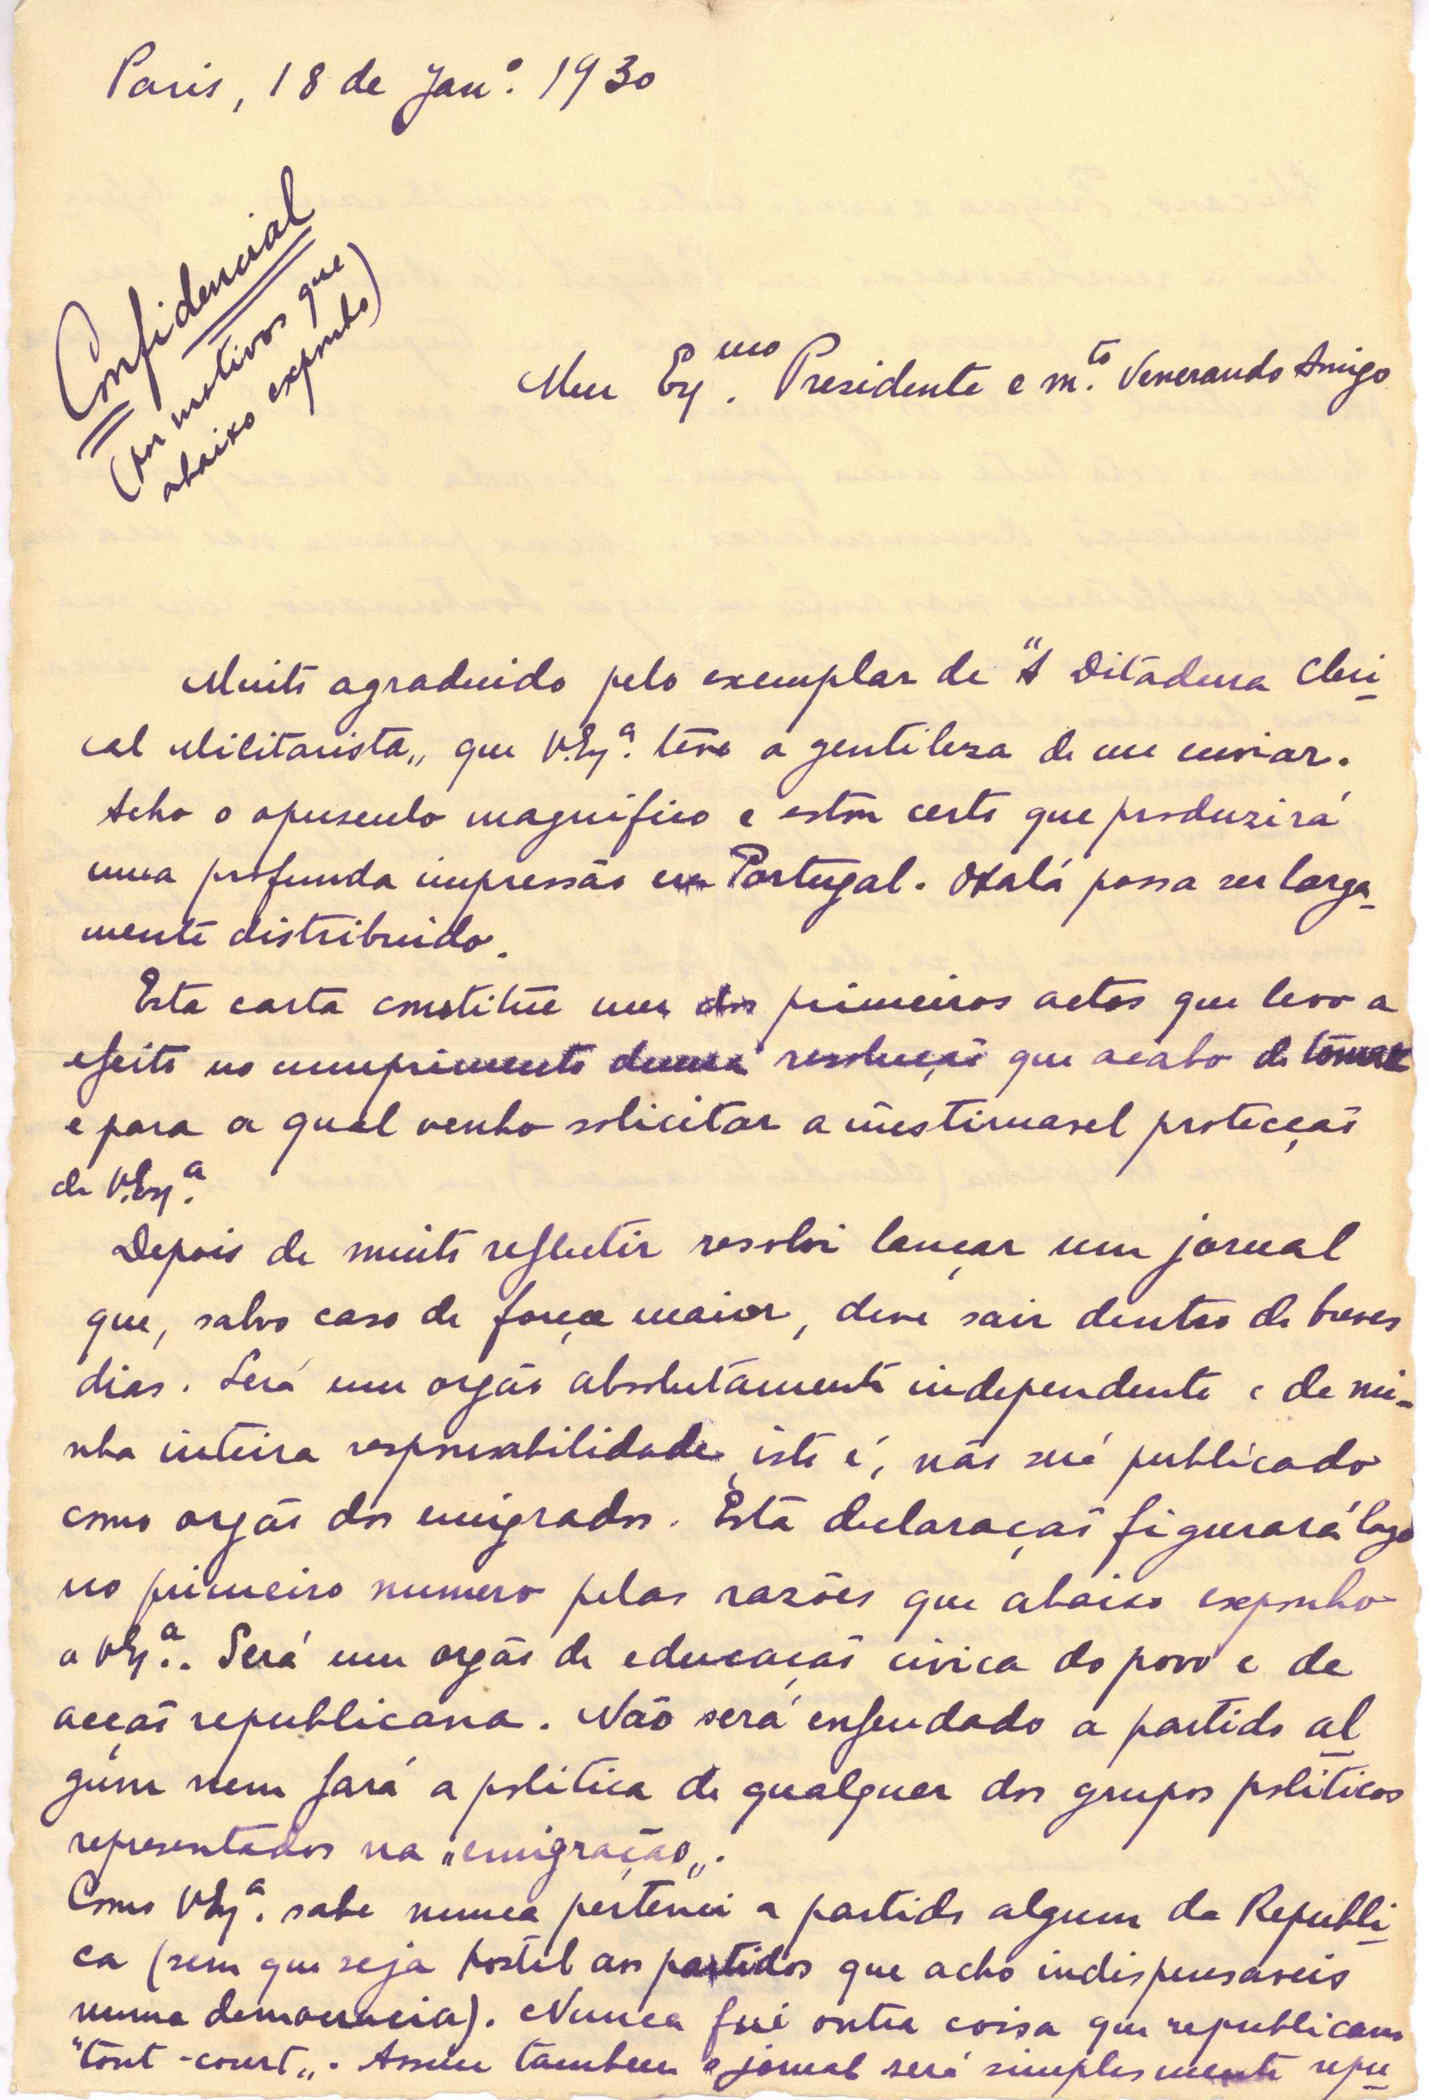 Paris, 18 de Janº. 1930
Confidencial
(por motivos que
abaixo exponho)
Meu Exmo. Presidente e m.to Venerando Amigo
Muito agradecido pelo exemplar de "A Ditadura Cleri-
cal Militarista„ que V.Exª. teve a gentileza de me enviar.
Acho o opusculo magnifico e estou certo que produzirá
uma profunda impressão em Portugal. Oxalá possa ser larga-
mente distribuido.
Esta carta constitúe um dos primeiros actos que levo a
efeito no cumprimento duma resolução que acabo de tomar
e para a qual venho solicitar a inestimavel protecção
de V.Exª.
Depois de muito reflectir resolvi lançar um jornal
que, salvo caso de força maior, deve sair dentro de breves
dias. Será um orgão absolutamente independente e de mi-
nha inteira responsabilidade, isto é, não será publicado
como orgão dos emigrados. Esta declaração figurará logo
no primeiro numero pelas razões que abaixo exponho
a V.Exª.. Será um orgão de educação civica do povo e de
acção republicana. Não será enfeudado a partido al-
gum nem fará a politica de qualquer dos grupos politicos
representados na „emigração„.
Como V.Exª. sabe nunca pertenci a partido algum da Republi-
ca (sem que seja hostil aos partidos que acho indispensaveis
numa democracia). Nunca fui outra coisa que republicano
"tout-court„. Assim tambem o jornal será simplesmente repu-